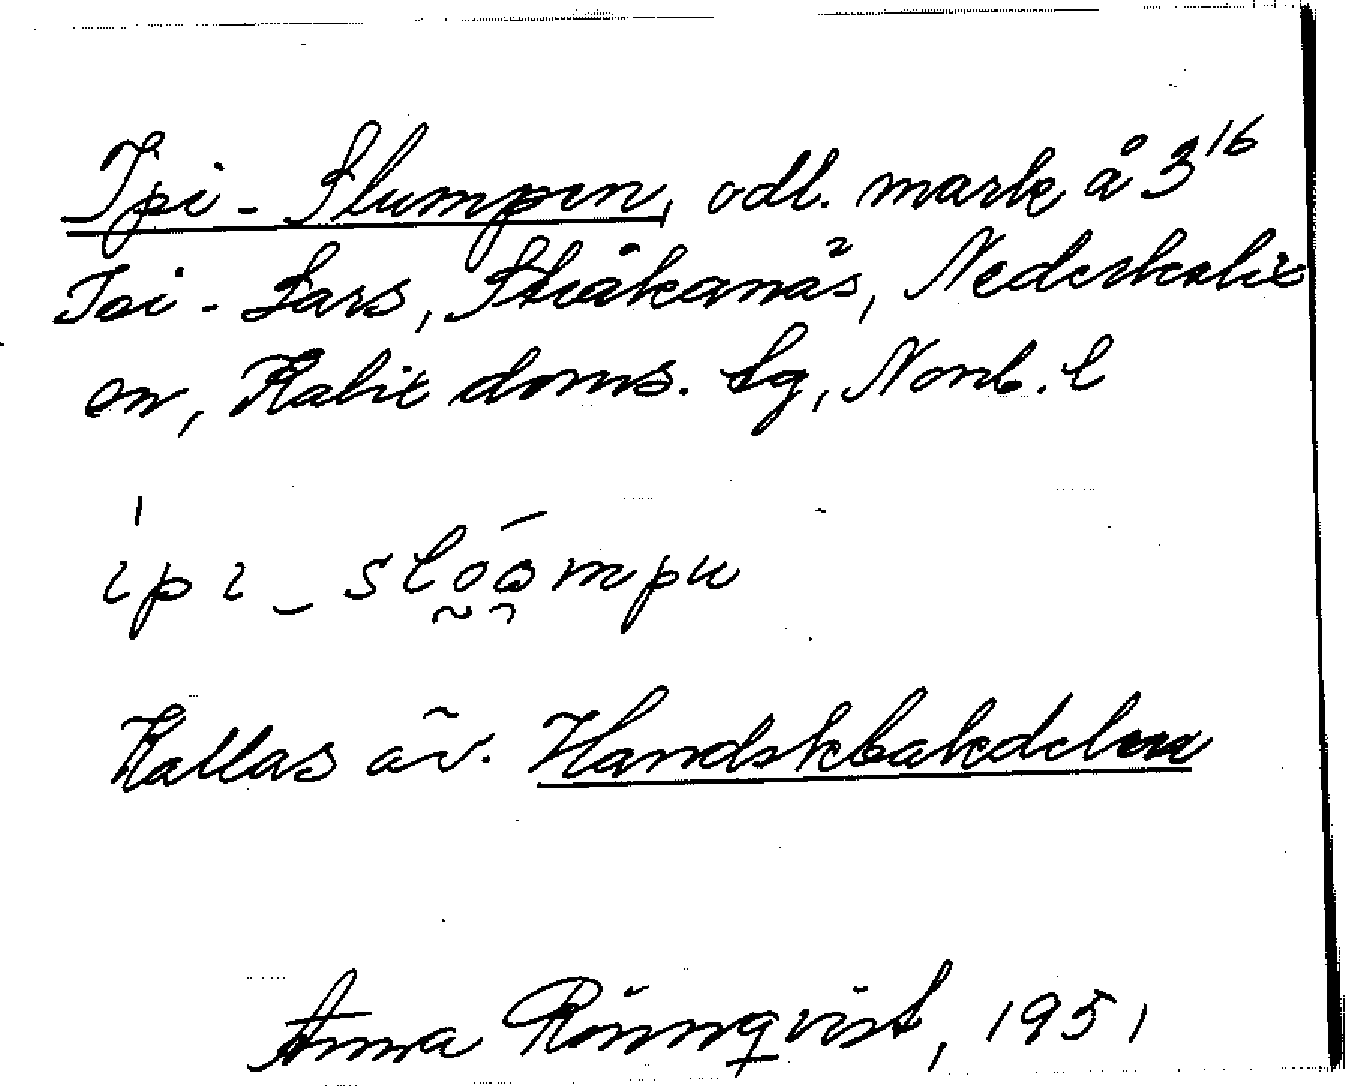 Ipi-Slumpen, odl. mark å 3¹⁶
Ioi-Lars, Stråkanäs, Nederkalix
sn, Kalix doms. lg, Norrb. l
ipi-slóompu
Kallas äv. Handskbakdelen
Anna Rönnqvist, 1951